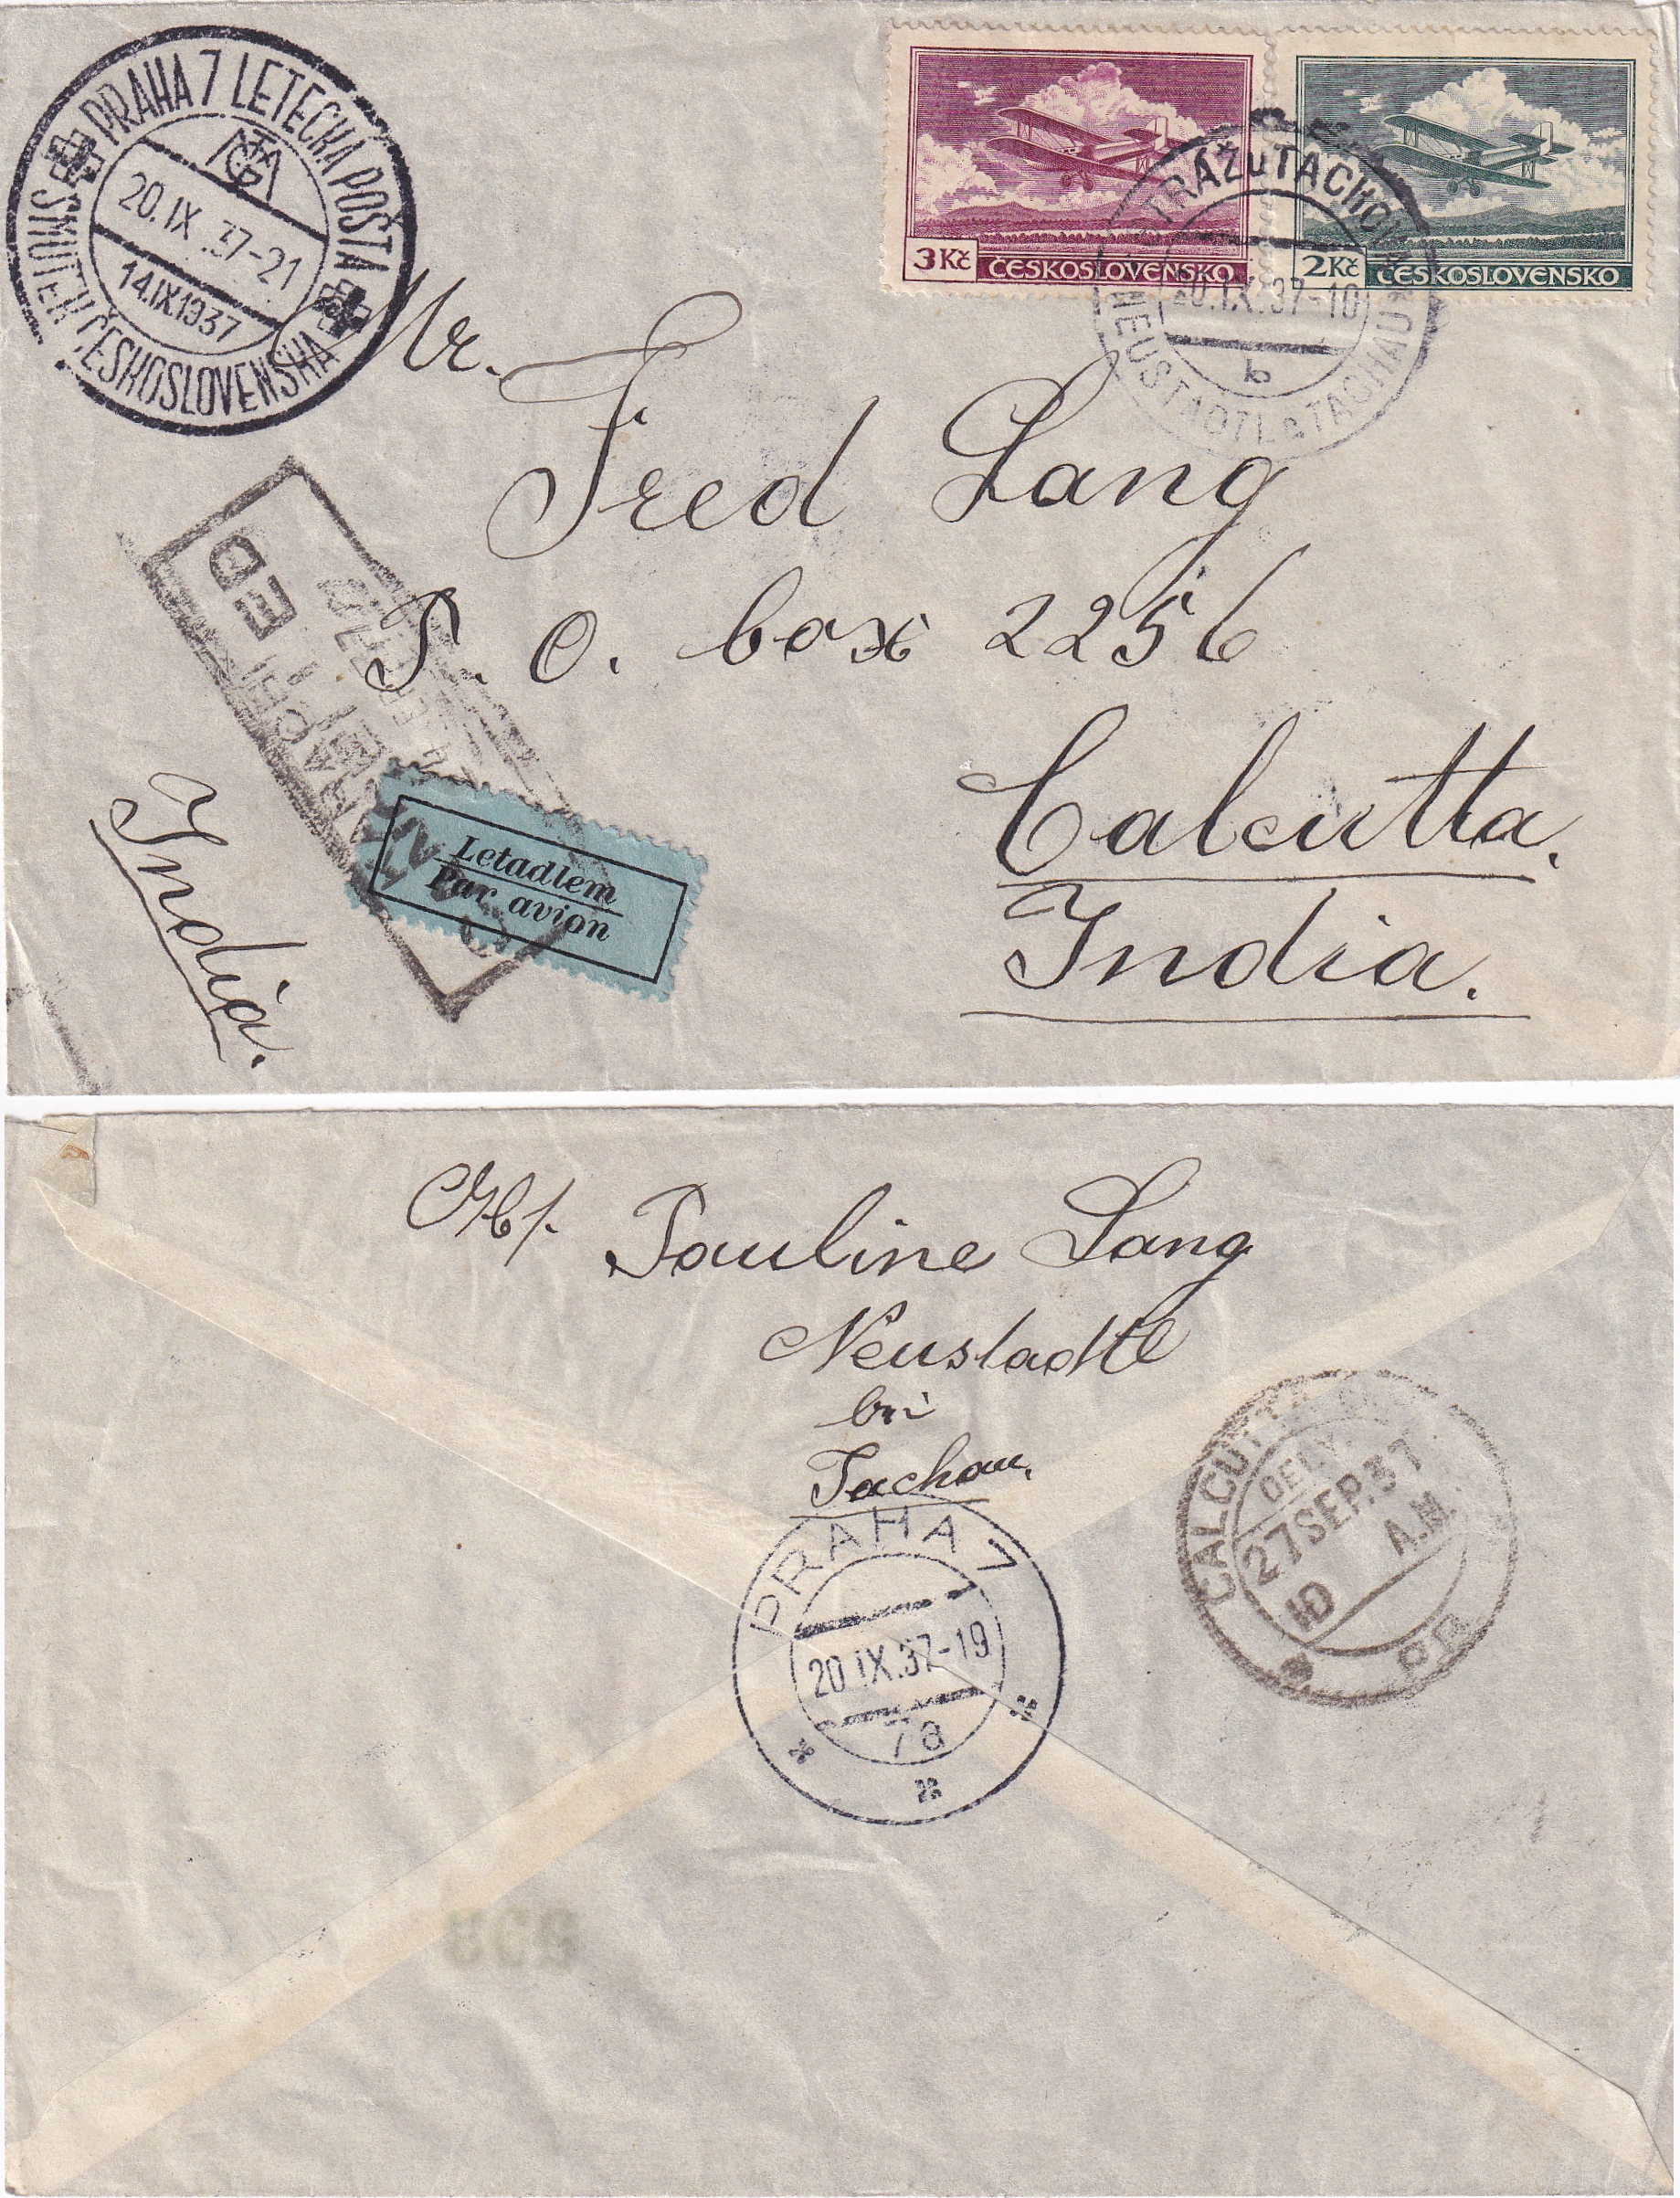 PRAHA 7 LETECKÁ POŠTA
TGM
20.IX.37-21
14.IX1937
SMUTEK ČESKOSLOVENSKA
3Kč ČESKOSLOVENSKO
2Kč ČESKOSLOVENSKO
STRÁŽ u TACHOVA
20.IX.37-10
b
NEUSTADTL b TACHAU
Mr.
Fred Lang
P. O. box 2256
Calcutta.
India.
India.
Letadlem
Par avion
Pauline Lang
Neustadtl
bei
Tachau.
PRAHA 7
20.IX.37-19
7a
CALCUTTA
DELY.
27SEP.37
A.M.